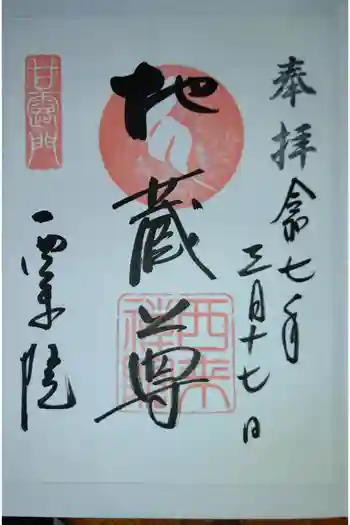 奉拝
令和七年
三月十七日
地蔵尊
甘露門
西来院
西来